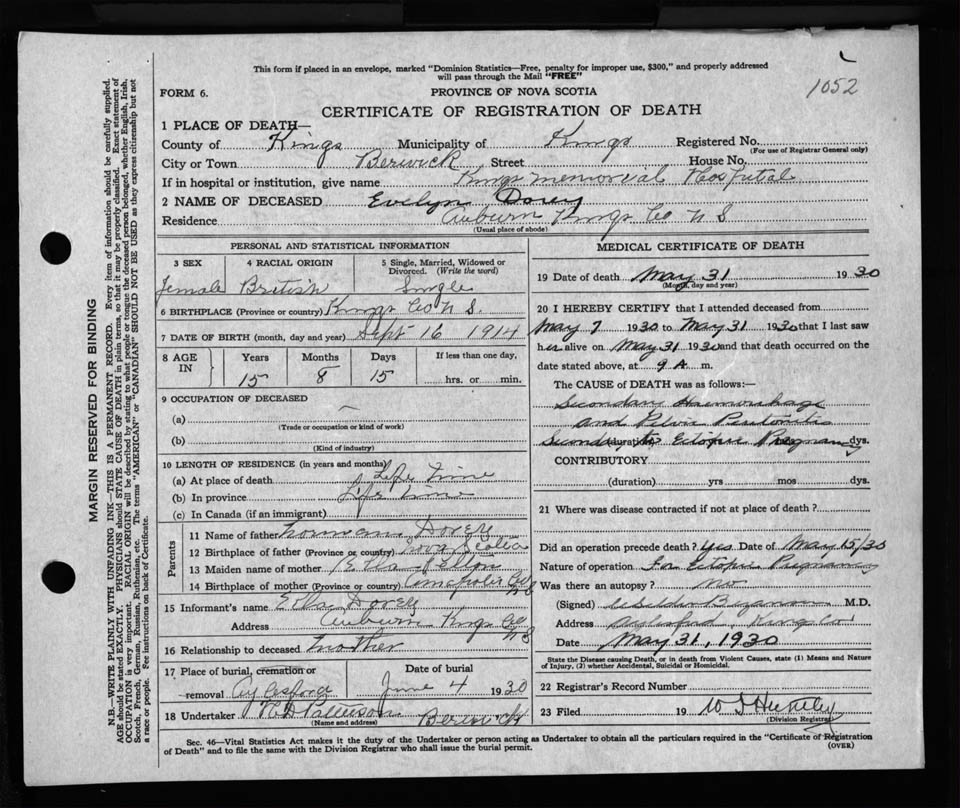 This form if placed in an envelope, marked "Dominion Statistics—Free, penalty for improper use, $300," and properly addressed
will pass through the Mail "FREE"
1052
FORM 6.
PROVINCE OF NOVA SCOTIA
CERTIFICATE OF REGISTRATION OF DEATH
1 PLACE OF DEATH—
County of Kings Municipality of Kings Registered No.
(For use of Registrar General only)
City or Town Berwick Street House No.
If in hospital or institution, give name Kings Memorial Hospital
2 NAME OF DECEASED Evelyn Dorey
Residence Auburn Kings Co N S
(Usual place of abode)
PERSONAL AND STATISTICAL INFORMATION
3 SEX 4 RACIAL ORIGIN 5 Single, Married, Widowed or
Divorced. (Write the word)
Female British Single
6 BIRTHPLACE (Province or country) Kings Co N S.
7 DATE OF BIRTH (month, day and year) Sept 16 1914
8 AGE IN Years Months Days If less than one day,
15 8 15 hrs. or min.
9 OCCUPATION OF DECEASED
(a)
(Trade or occupation or kind of work)
(b)
(Kind of industry)
10 LENGTH OF RESIDENCE (in years and months)
(a) At place of death Life Time
(b) In province Life Time
(c) In Canada (if an immigrant)
Parents
11 Name of father Norman Dorey
12 Birthplace of father (Province or country) Nova Scotia
13 Maiden name of mother Etta
14 Birthplace of mother (Province or country) Co NS
15 Informant's name Etta Dorey
Address Auburn Kings Co NS
16 Relationship to deceased Mother
17 Place of burial, cremation or Date of burial
removal Aylesford June 4 1930
18 Undertaker Patterson Berwick
(Name and address)
MEDICAL CERTIFICATE OF DEATH
19 Date of death May 31 1930
(Month, day and year)
20 I HEREBY CERTIFY that I attended deceased from
May 7 1930 to May 31 1930 that I last saw
her alive on May 31 1930 and that death occurred on the
date stated above, at 9 A. m.
The CAUSE OF DEATH was as follows:—
Secondary Haemorrhage
and Pelvic Peritonitis
(duration) Ectopic Pregnancy dys.
CONTRIBUTORY
(duration) yrs mos dys.
21 Where was disease contracted if not at place of death?
Did an operation precede death? Yes Date of May 15/30
Nature of operation For Ectopic Pregnancy
Was there an autopsy? No
(Signed) M.D.
Address Kings Co
Date May 31, 1930
State the Disease causing Death, or in death from Violent Causes, state (1) Means and Nature
of Injury, (2) whether Accidental, Suicidal or Homicidal.
22 Registrar's Record Number
23 Filed 19
(Division Registrar)
Sec. 46—Vital Statistics Act makes it the duty of the Undertaker or person acting as Undertaker to obtain all the particulars required in the "Certificate of Registration
of Death" and to file the same with the Division Registrar who shall issue the burial permit.
(OVER)
MARGIN RESERVED FOR BINDING
N.B.—WRITE PLAINLY WITH UNFADING INK—THIS IS A PERMANENT RECORD. Every item of information should be carefully supplied.
AGE should be stated EXACTLY. PHYSICIANS should STATE CAUSE OF DEATH in plain terms, so that it may be properly classified. Exact statement of
OCCUPATION is very important. RACIAL ORIGIN will be described by stating to what people or tongue the deceased person belonged, whether English, Irish,
Scotch, French, German, Russian, Ruthenian, etc. The terms "AMERICAN" or "CANADIAN" SHOULD NOT BE USED as they express citizenship but not
a race or people. See instructions on back of Certificate.